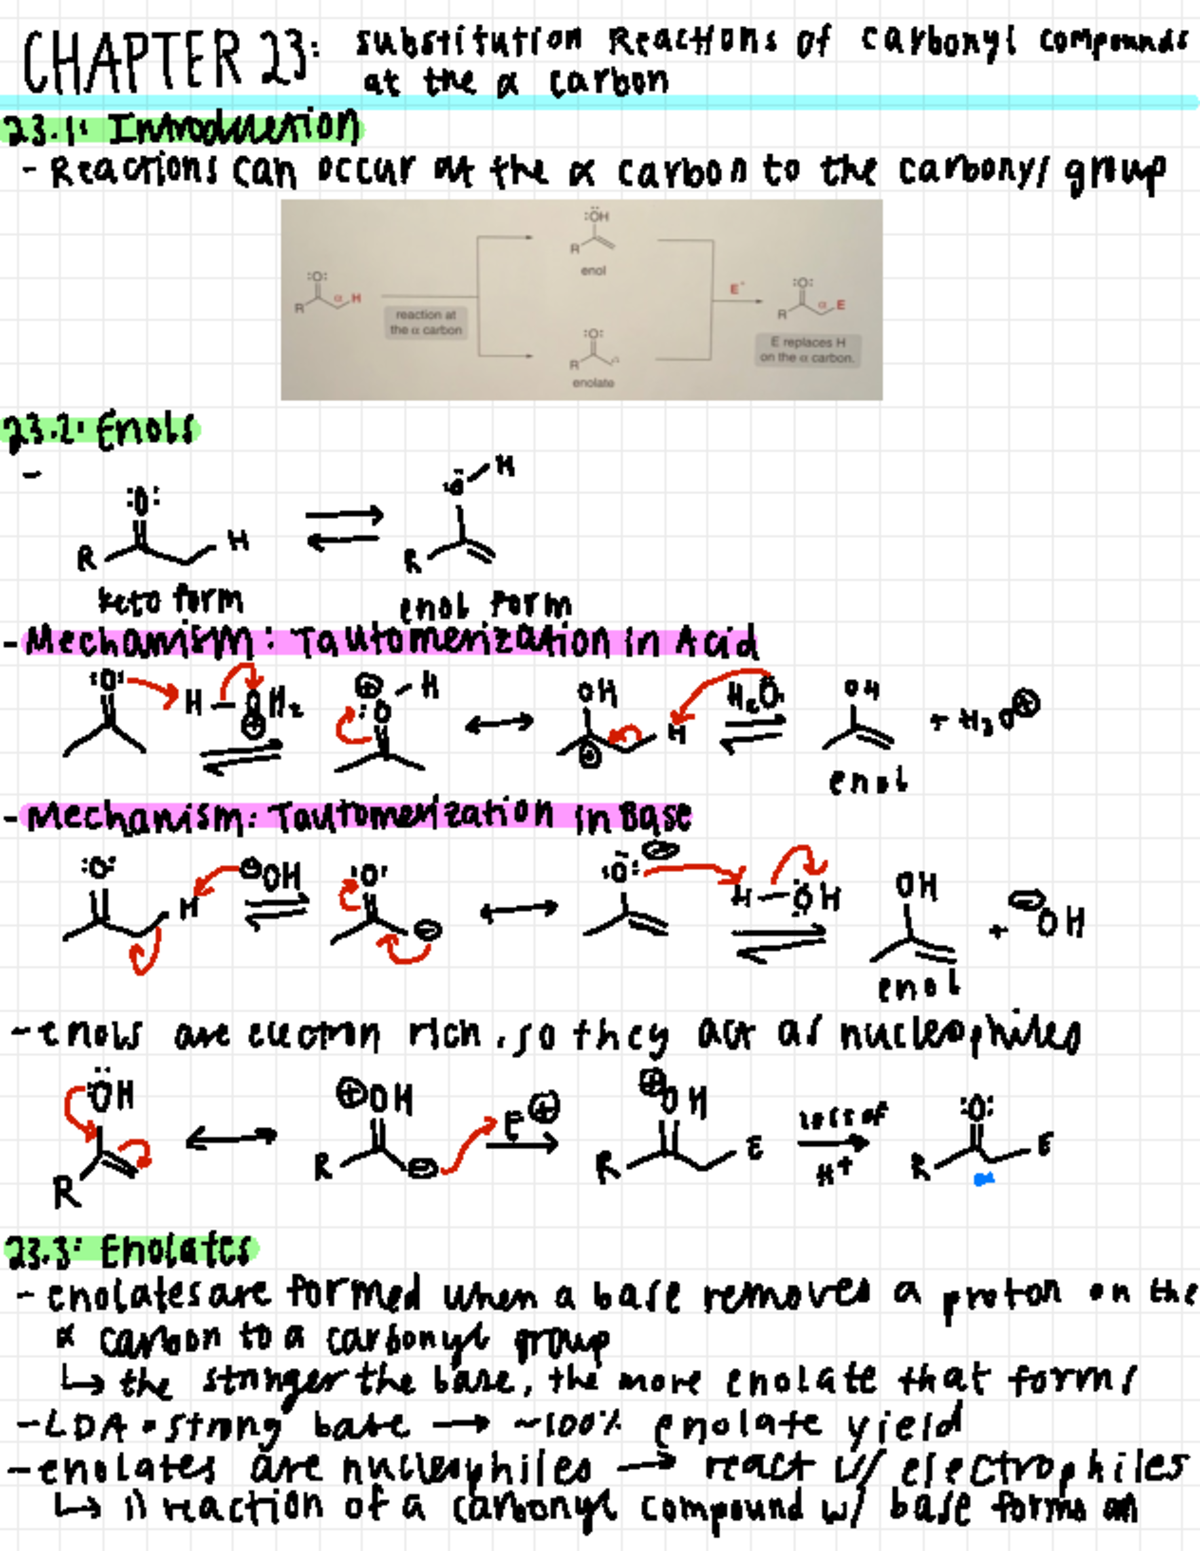 CHAPTER 23: substitution Reactions of carbonyl compounds
at the α carbon
23.1: Introduction
- Reactions can occur at the α carbon to the carbonyl group
:ÖH
R
enol
:O:
R α H
reaction at
the α carbon
E⁺
:O:
R α E
E replaces H
on the α carbon.
:O:
R
enolate
23.2: Enols
-
:O: R H
:Ö-H R
keto form
enol form
- Mechanism: Tautomerization in Acid
:O: H-OH₂ ⊕
⊕ :O-H
OH ⊕ H
H₂O:
OH
+ H₃O⊕
enol
- Mechanism: Tautomerization in Base
:O: H
⊖OH
:O: ⊖
:Ö: ⊖
H-ÖH
OH
+ ⊖OH
enol
- enols are electron rich, so they act as nucleophiles
ÖH R
⊕OH R ⊖
E⊕
⊕OH R E
loss of
H+
:O: R E
α
23.3: Enolates
- enolates are formed when a base removes a proton on the
α carbon to a carbonyl group
↳ the stronger the base, the more enolate that forms
- LDA = strong base → ~100% enolate yield
- enolates are nucleophiles → react w/ electrophiles
↳ 1) reaction of a carbonyl compound w/ base forms an